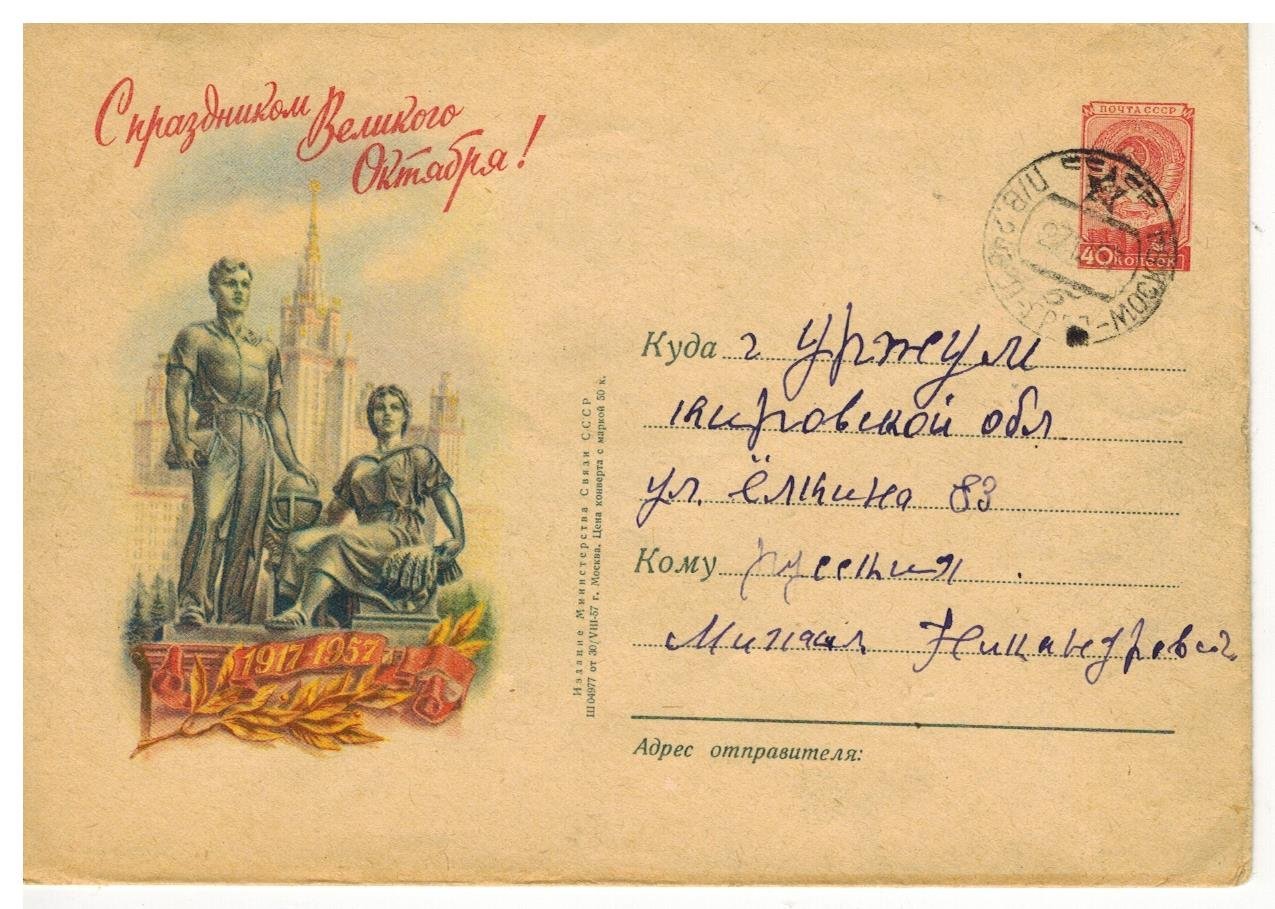 С праздником
Великого
Октября!
1917 1957
Издание Министерства Связи СССР
Ш 04977 от 30/VIII-57 г. Москва. Цена конверта с маркой 50 к.
ПОЧТА СССР
40 КОПЕЕК
Куда г Уржум
кировской обл
ул. Ёлкина 83
Кому
Михаил Никандрович
Адрес отправителя: